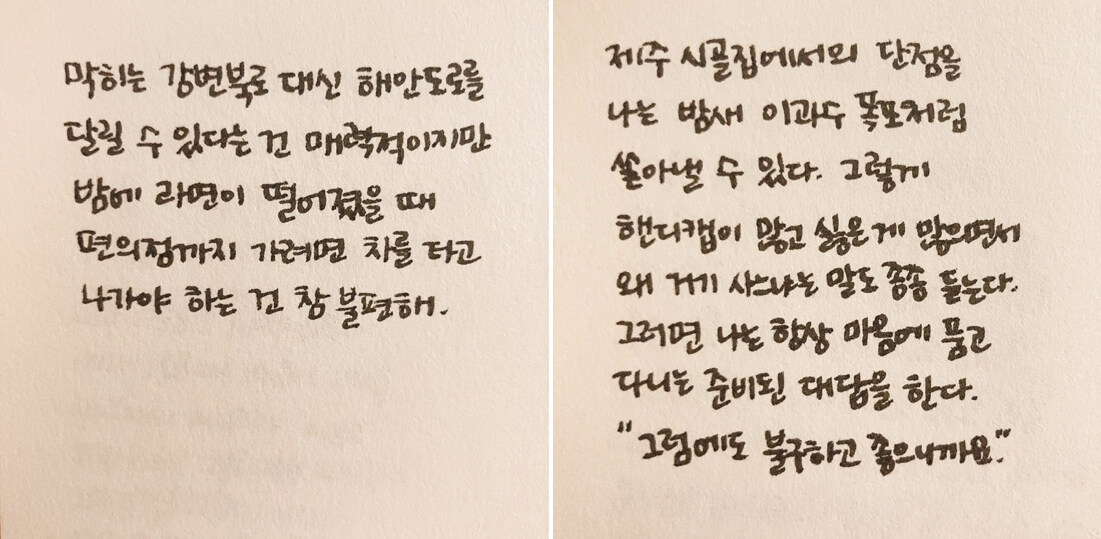 막히는 강변북로 대신 해안도로를
달릴 수 있다는 건 매력적이지만
밤에 라면이 떨어졌을 때
편의점까지 가려면 차를 타고
나가야 하는 건 참 불편해.
제주 시골집에서의 단점을
나는 밤새 이과수 폭포처럼
쏟아낼 수 있다. 그렇게
핸디캡이 많고 싫은 게 많으면서
왜 거기 사느냐는 말도 종종 듣는다.
그러면 나는 항상 마음에 품고
다니는 준비된 대답을 한다.
"그럼에도 불구하고 좋으니까요."